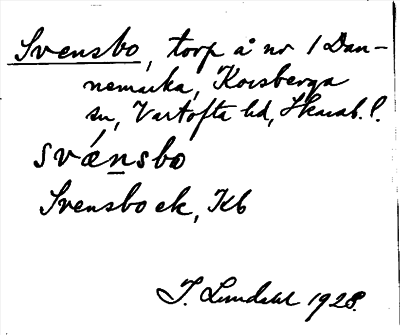 Svensbo, torp å nr 1 Dan-
nemarka, Korsberga
sn, Vartofta hd, Skarab. l.
svánsbo
Svensbo ek, Kb
I. Lundahl 1928.